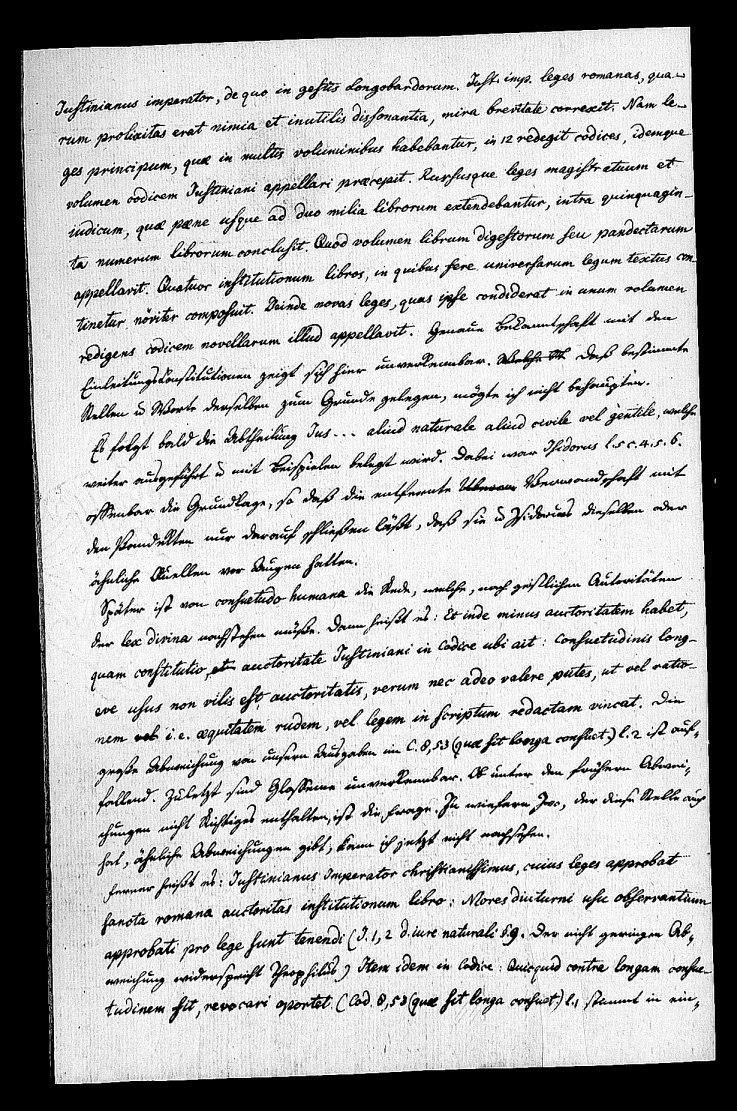 Justinianus imperator, de quo in gestis Longobardorum. Just. imp. leges romanas, qua-
rum prolixitas erat nimia et inutilis dissonantia, mira brevitate correxit. Nam le-
ges principum, quæ in multis voluminibus habebantur, in 12 redegit codices, idemque
volumen codicem Justiniani appellari præcepit. Rursusque leges magistratuum et
iudicum, quæ pæne usque ad duo milia librorum extendebantur, intra quinquagin-
ta numerum librorum conclusit. Quod volumen librum digestorum seu pandectarum
appellavit. Quatuor institutionum libros, in quibus fere universarum legum textus con
tinetur noviter composuit. Deinde novas leges, quas ipse condiderat in unum volumen
redigens codicem novellarum illud appellavit. Genaue Bekanntschaft mit den
Einleitungskonstitutionen zeigt sich hier unverkennbar. Daß bestimmte
Stellen u Worte derselben zum Grunde gelegen, mögte ich nicht behaupten.
Es folgt bald die Abtheilung Jus ... aliud naturale aliud civile vel gentile, welche
weiter ausgeführt u mit Beispielen belegt wird. Dabei war Isidorus l. 5 c. 4. 5. 6.
offenbar die Grundlage, so daß die entfernte Verwandschaft mit
den Pandekten nur darauf schließen läßt, daß sie u Isidorus dieselben oder
ähnliche Quellen vor Augen hatten.
Später ist von consuetudo humana die Rede, welche, nach geistlichen Autoritäten
der lex divina nachstehen müsse. Dann heißt es: Et inde minus auctoritatem habet,
quam constitutio, et auctoritate Justiniani in Codice ubi ait: consuetudinis long-
eve usus non vilis est auctoritatis, verum nec adeo valere putes, ut vel ratio-
nem vel i. e. æquitatem rudem, vel legem in scriptum redactam vincat. Die
große Abweichung von unsern Ausgaben im C. 8, 53 (quæ sit longa consuet.) l. 2 ist auf-
fallend. Zuletzt sind Glosseme unverkennbar. Ob unter den frühern Abwei-
chungen nicht Richtiges enthalten, ist die Frage. In wiefern Ivo, der diese Stelle auch
hat, ähnliche Abweichungen gibt, kann ich jetzt nicht nachsehen.
Ferner heißt es: Justinianus Imperator christianissimus, cuius leges approbat
sancta romana auctoritas institutionum libro: Mores diuturni usu observantium
approbati pro lege sunt tenendi (J. 1, 2 d. iure naturali §. 9. Der nicht geringen Ab-
weichung widerspricht Theophilus) Item idem in Codice: Quicquid contra longam consue-
tudinem fit, revocari oportet. (Cod. 8, 53 (quæ sit longa consuet.) l. 1 stammt in ein-